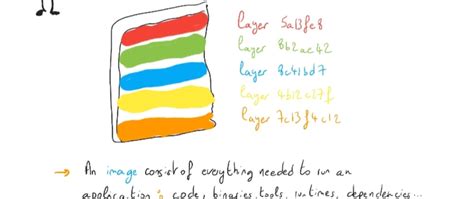 layer 5a13fe8
layer 8b2ae42
layer 8c41bd7
layer 4b12c37f
layer 7c13f4c12
→ An image consist of everything needed to run an
application : code, binaries, tools, runtimes, dependencies...